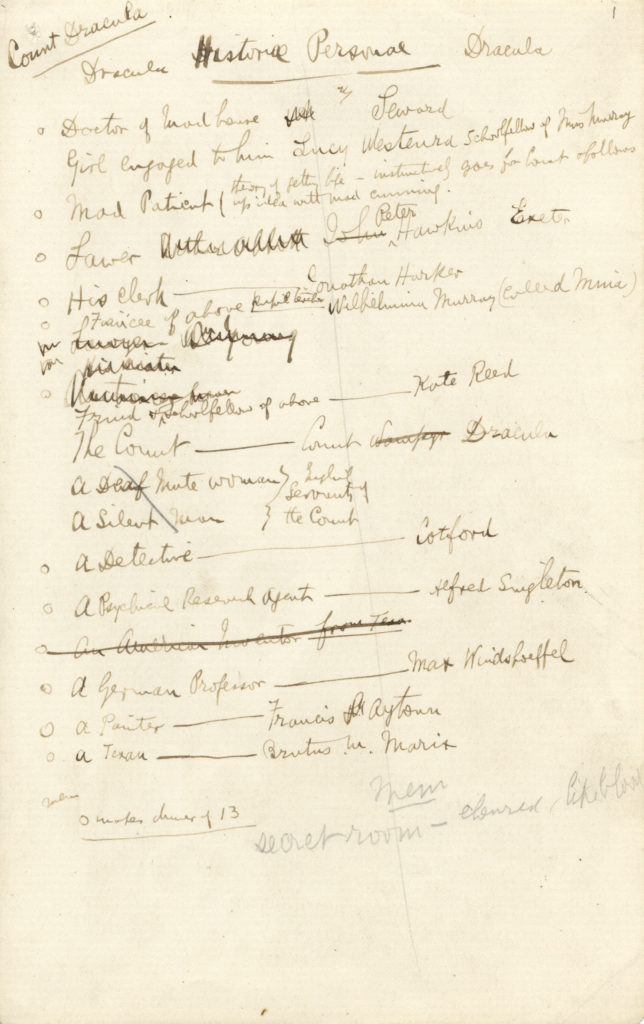 Count Dracula
1
Dracula Historiae Personae Dracula
Doctor of Mad house Seward
Girl engaged to him Lucy Westenra schoolfellow of Miss Murray
Mad Patient (theory of getting life – instinctively goes for Count & follows
up idea with mad cunning.
Lawer John Peter Hawkins Exeter
His clerk Jonathan Harker
Fiancee of above pupil teacher Wilhelmina Murray (called Mina)
Lawyer
Friend & schoolfellow of above Kate Reed
The Count Count Wampyr Dracula
A Deaf Mute woman } English
Servants of
A Silent Man } the Count
A Detective Cotford
A Psychical Research Agent Alfred Singleton
An American Inventor from Texas
A German Professor Max Windshoeffel
A Painter Francis Aytown
A Texan Brutus M. Marix
mem
makes dinner of 13
Mem
secret room – coloured like blood